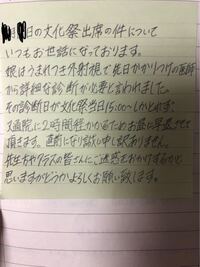 日の文化祭出席の件について
いつもお世話になっております。
娘はうまれつき外斜視で先日かかりつけの医師
から詳細な診断が必要と言われました。
その診断日が文化祭当日15:00〜しかとれず、
又通院に2時間程かかるためお昼に早退させて
頂きます。直前になり誠に申し訳ありません。
先生方やクラスの皆さんにご迷惑をおかけするかと
思いますがどうかよろしくお願い致します。